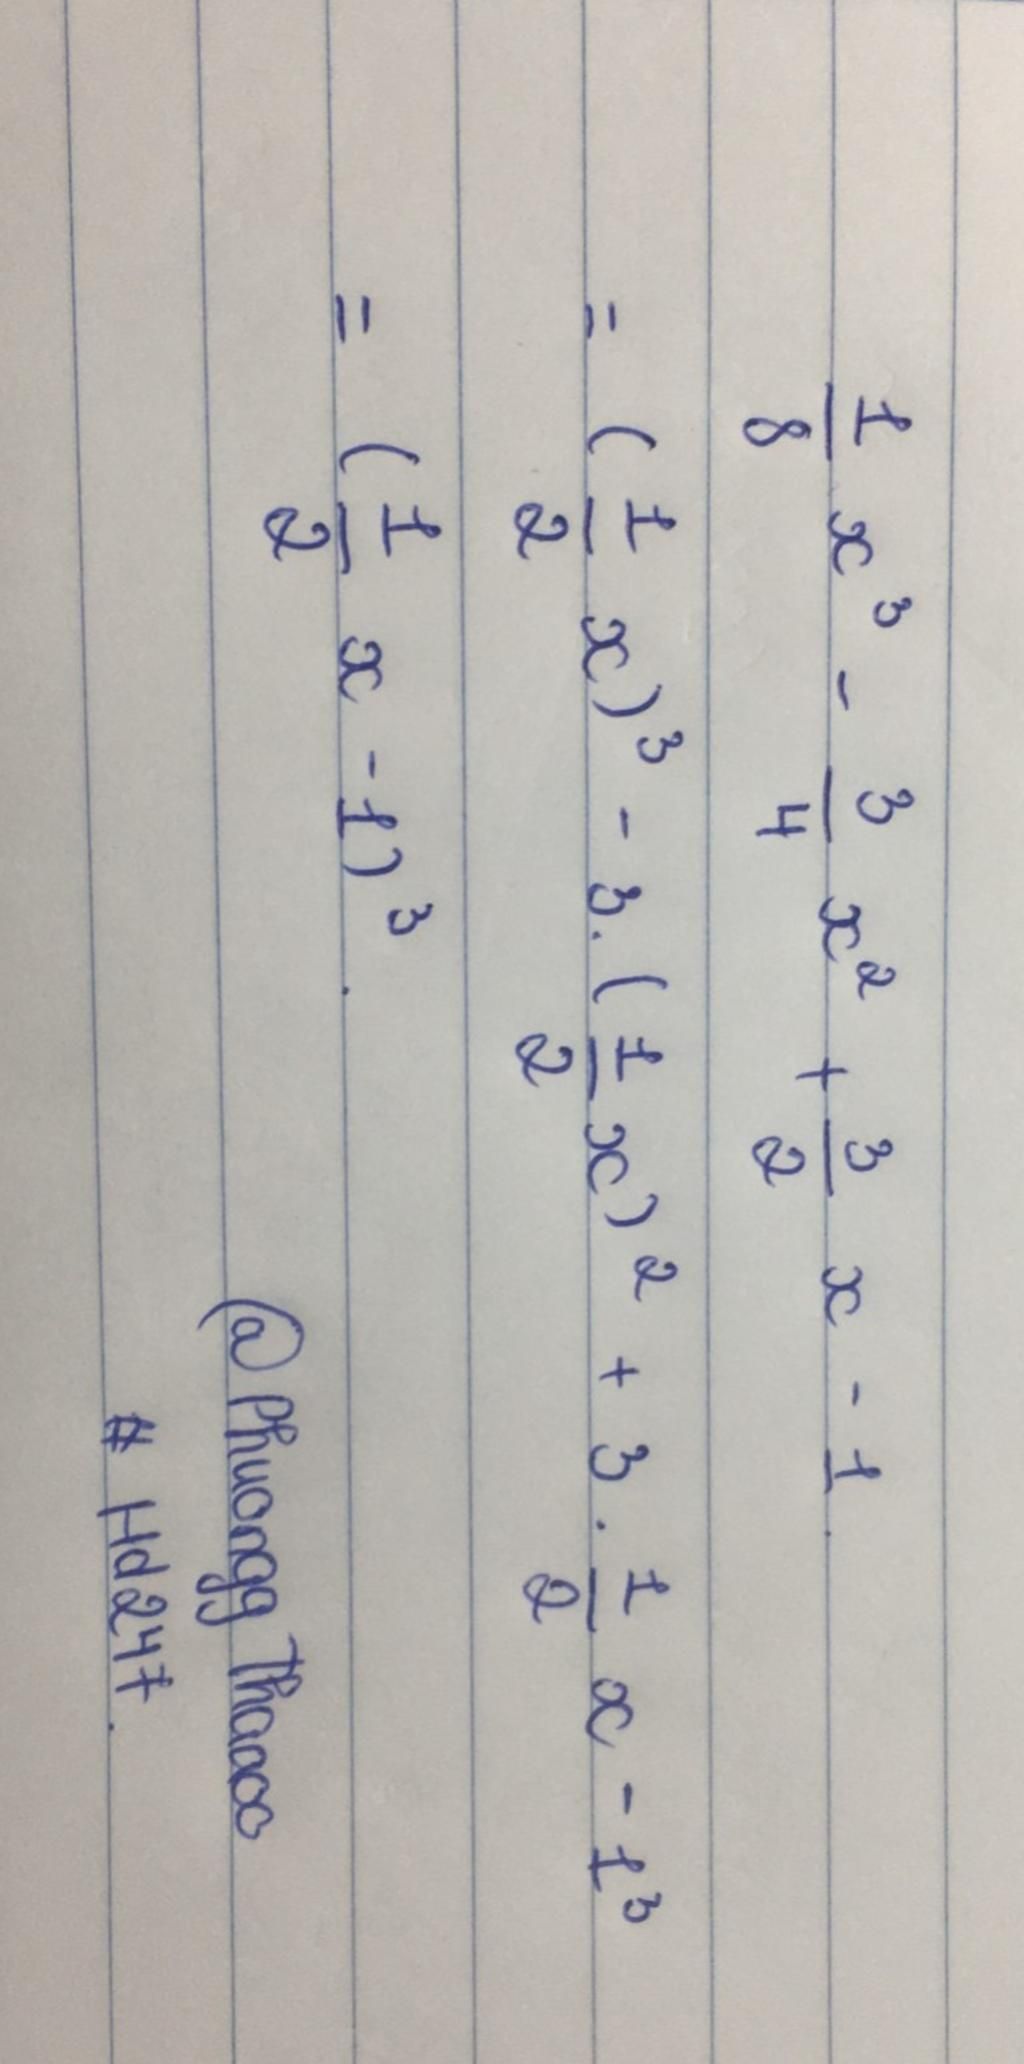 1/8 x³ - 3/4 x² + 3/2 x - 1.
= (1/2 x)³ - 3.(1/2 x)² + 3 . 1/2 x - 1³
= (1/2 x - 1)³.
@Phuongg Thaoo
# Hd247.